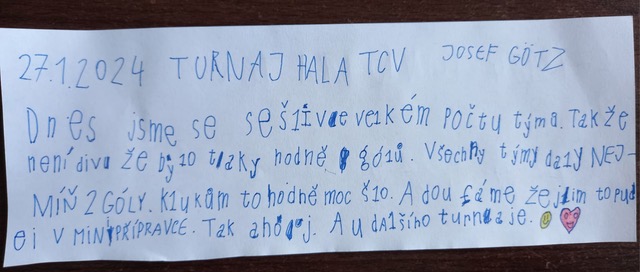 27.1.2024 TURNAJ HALA TCV JOSEF GÖTZ
Dnes jsme se sešli ve velkém počtu týma. Takže
není divu že bylo tlaky hodně gólů. Všechny týmy daly NEJ-
MÍŇ 2 GÓLY. Klukům to hodně moc šlo. A doufáme že jim to pud
ei V MINIPŘÍPRAVCE. Tak ahoj. A u dalšího turnaje.